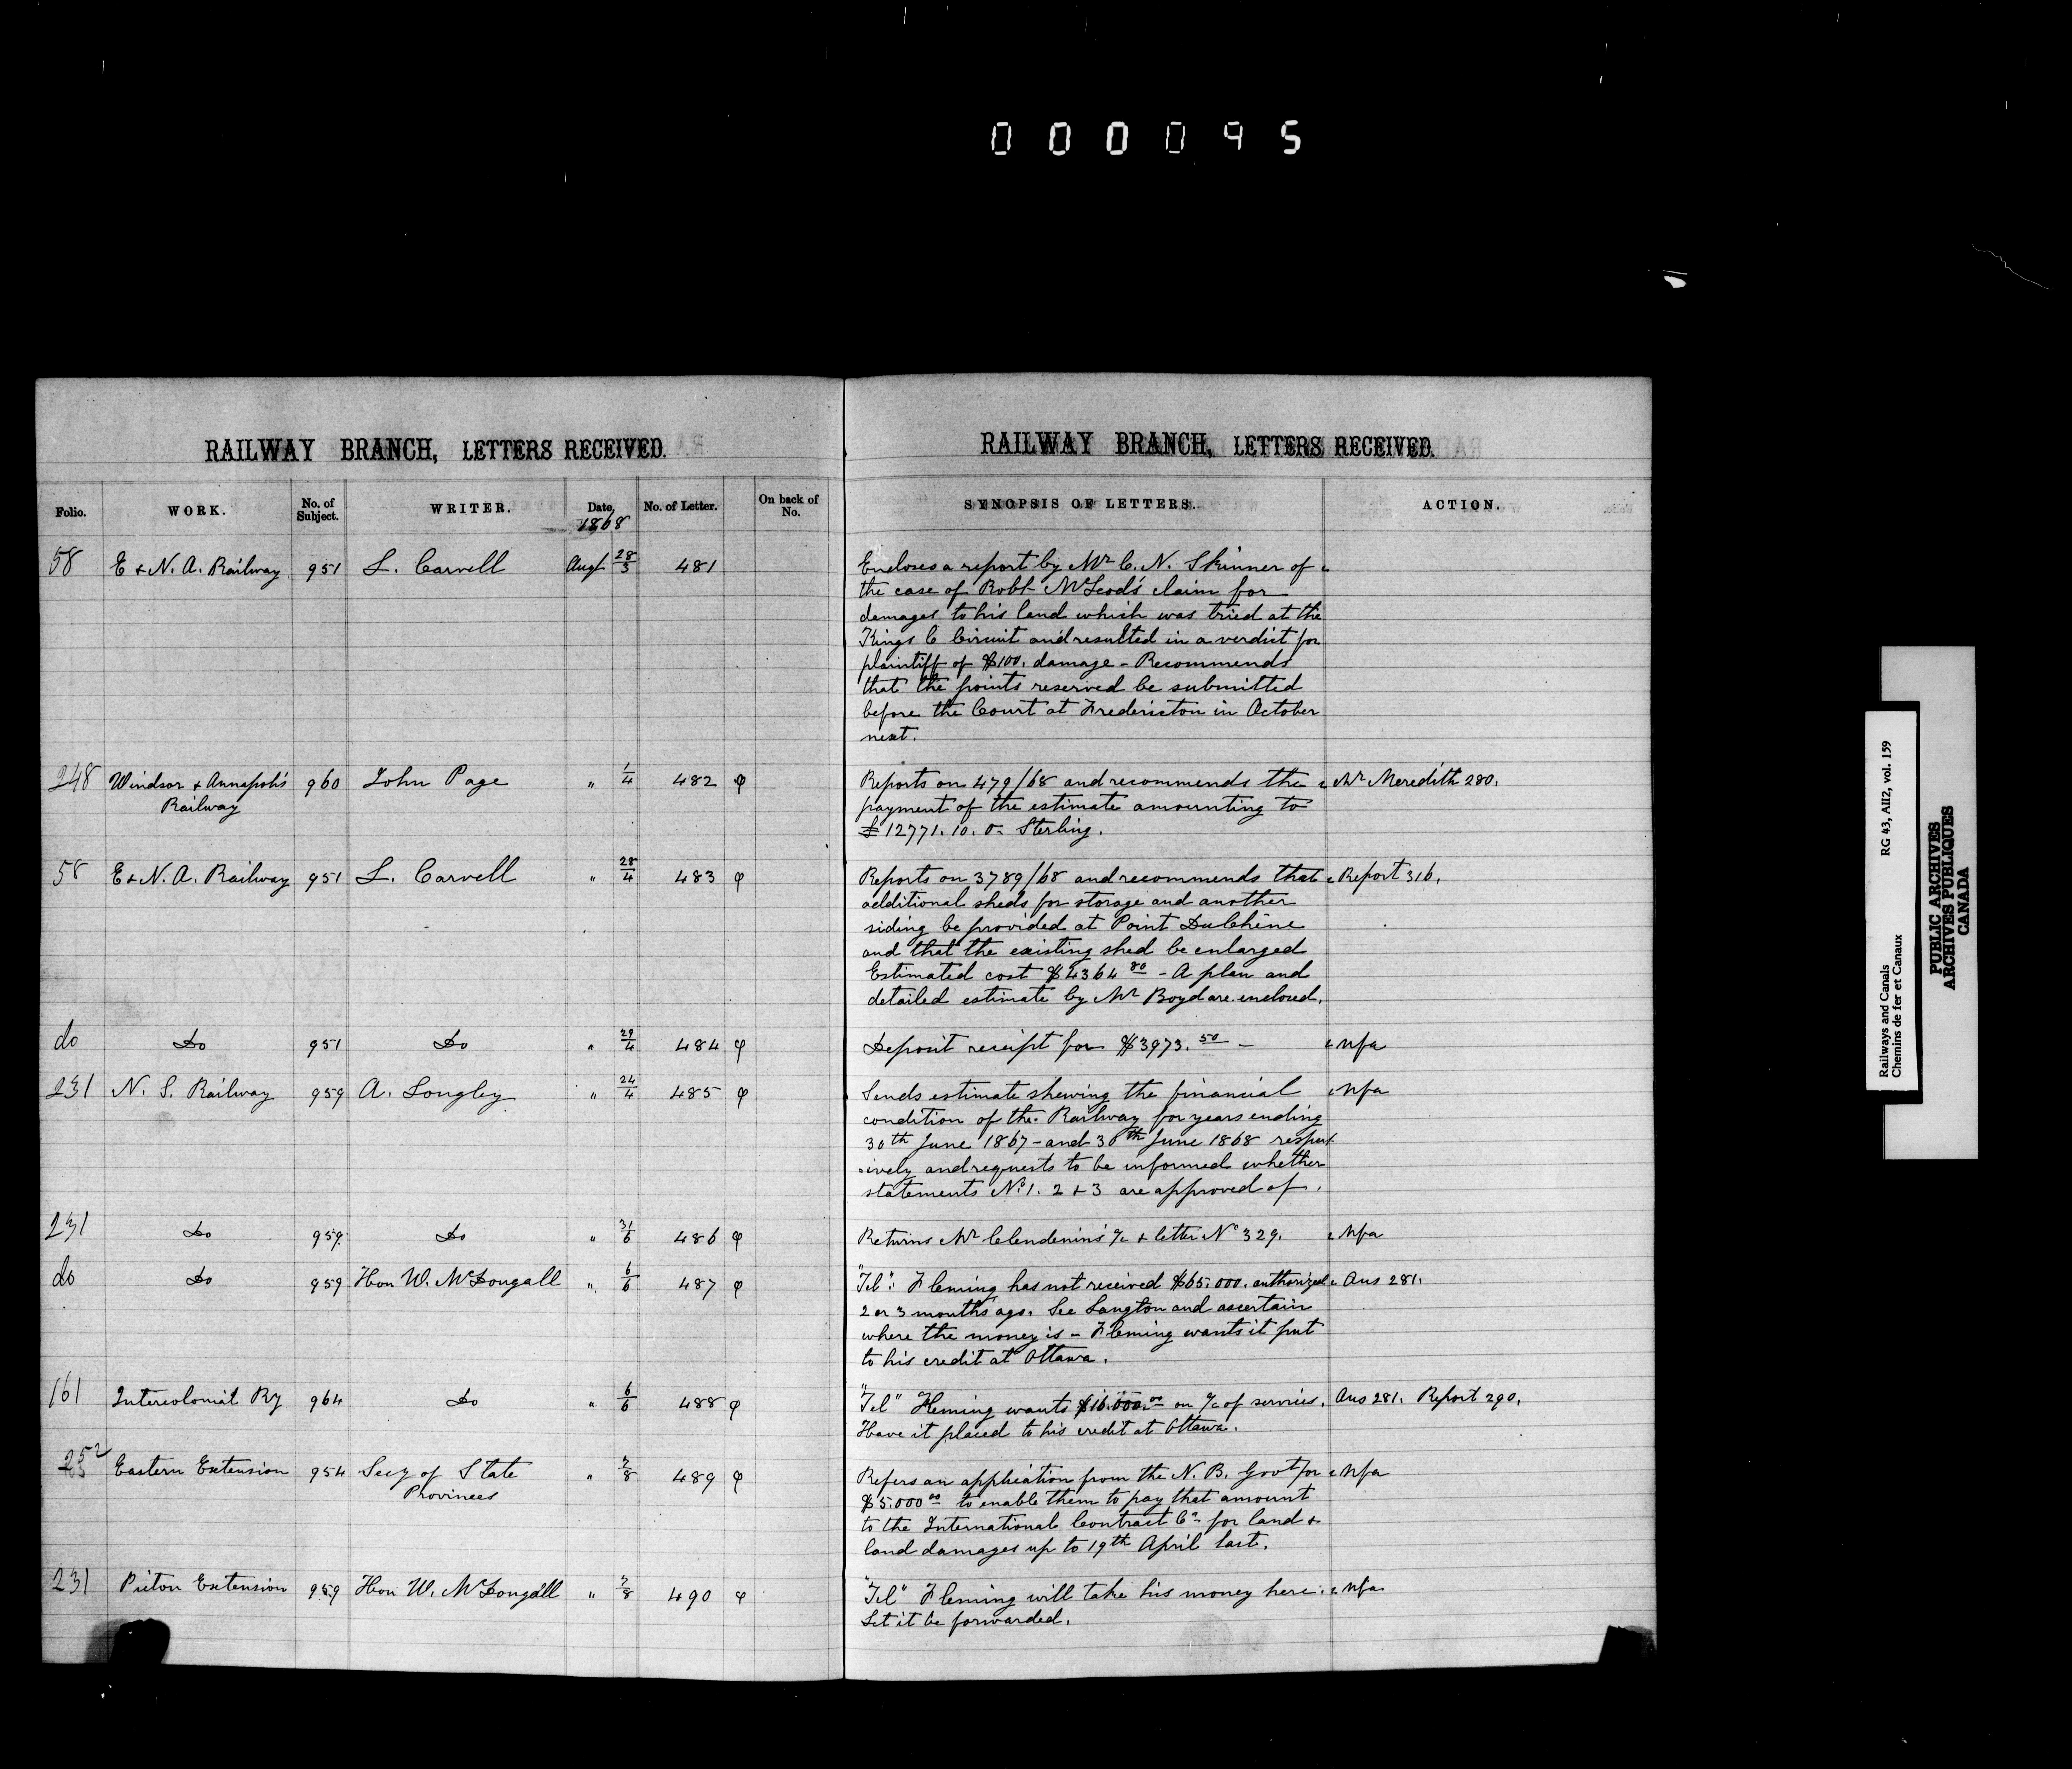 000095
RAILWAY BRANCH, LETTERS RECEIVED.
Folio. WORK. No. of Subject. WRITER. Date, 1868 No. of Letter. On back of No.
58 E & N. A. Railway 951 L. Carvell Augt 28/3 481
248 Windsor & Annapolis 960 John Page " 1/4 482 φ
Railway
58 E & N. A. Railway 951 L. Carvell " 28/4 483 φ
do Do 951 Do " 29/4 484 φ
231 N. S. Railway 959 A. Longley " 24/4 485 φ
231 Do 959 Do " 31/6 486 φ
do Do 959 Hon W. McDougall " 6/6 487 φ
161 Intercolonial Ry 964 Do " 6/6 488 φ
252 Eastern Extension 954 Secy of State " 7/8 489 φ
Provinces
231 Pictou Extension 959 Hon W. McDougall " 7/8 490 φ
RAILWAY BRANCH, LETTERS RECEIVED.
SYNOPSIS OF LETTERS. ACTION.
Encloses a report by Mr C. N. Skinner of
the case of Robt McLeod's claim for
damages to his land which was tried at the
Kings C Circuit and resulted in a verdict for
plaintiff of $100. damage - Recommends
that the points reserved be submitted
before the Court at Fredericton in October
next.
Reports on 479/68 and recommends the Mr Meredith 280.
payment of the estimate amounting to
£12771. 10. 0. Sterling.
Reports on 3789/68 and recommends that Report 316.
additional sheds for storage and another
siding be provided at Point DuChêne
and that the existing shed be enlarged
Estimated cost $4364 80 - A plan and
detailed estimate by Mr Boyd are enclosed.
Deposit receipt for $3973. 50 - Nfa
Sends estimate shewing the financial Nfa
condition of the Railway for years ending
30th June 1867 - and 30th June 1868 respect
ively and requests to be informed whether
statements No 1. 2 & 3 are approved of.
Returns Mr Clendenin's a/c & letter No 329. Nfa
"Tel": Fleming has not received $65.000. authorized Ans 281.
2 or 3 months ago. See Langton and ascertain
where the money is - Fleming wants it put
to his credit at Ottawa.
"Tel" Fleming wants $16.000.00 on a/c of services. Ans 281. Report 290.
Have it placed to his credit at Ottawa.
Refers an application from the N. B. Govt for Nfa
$5.000 00 to enable them to pay that amount
to the International Contract Co for land &
land damages up to 19th April last.
"Tel" Fleming will take his money here. Nfa
Let it be forwarded.
Railways and Canals RG 43, AII2, vol. 159
Chemins de fer et Canaux
PUBLIC ARCHIVES
ARCHIVES PUBLIQUES
CANADA